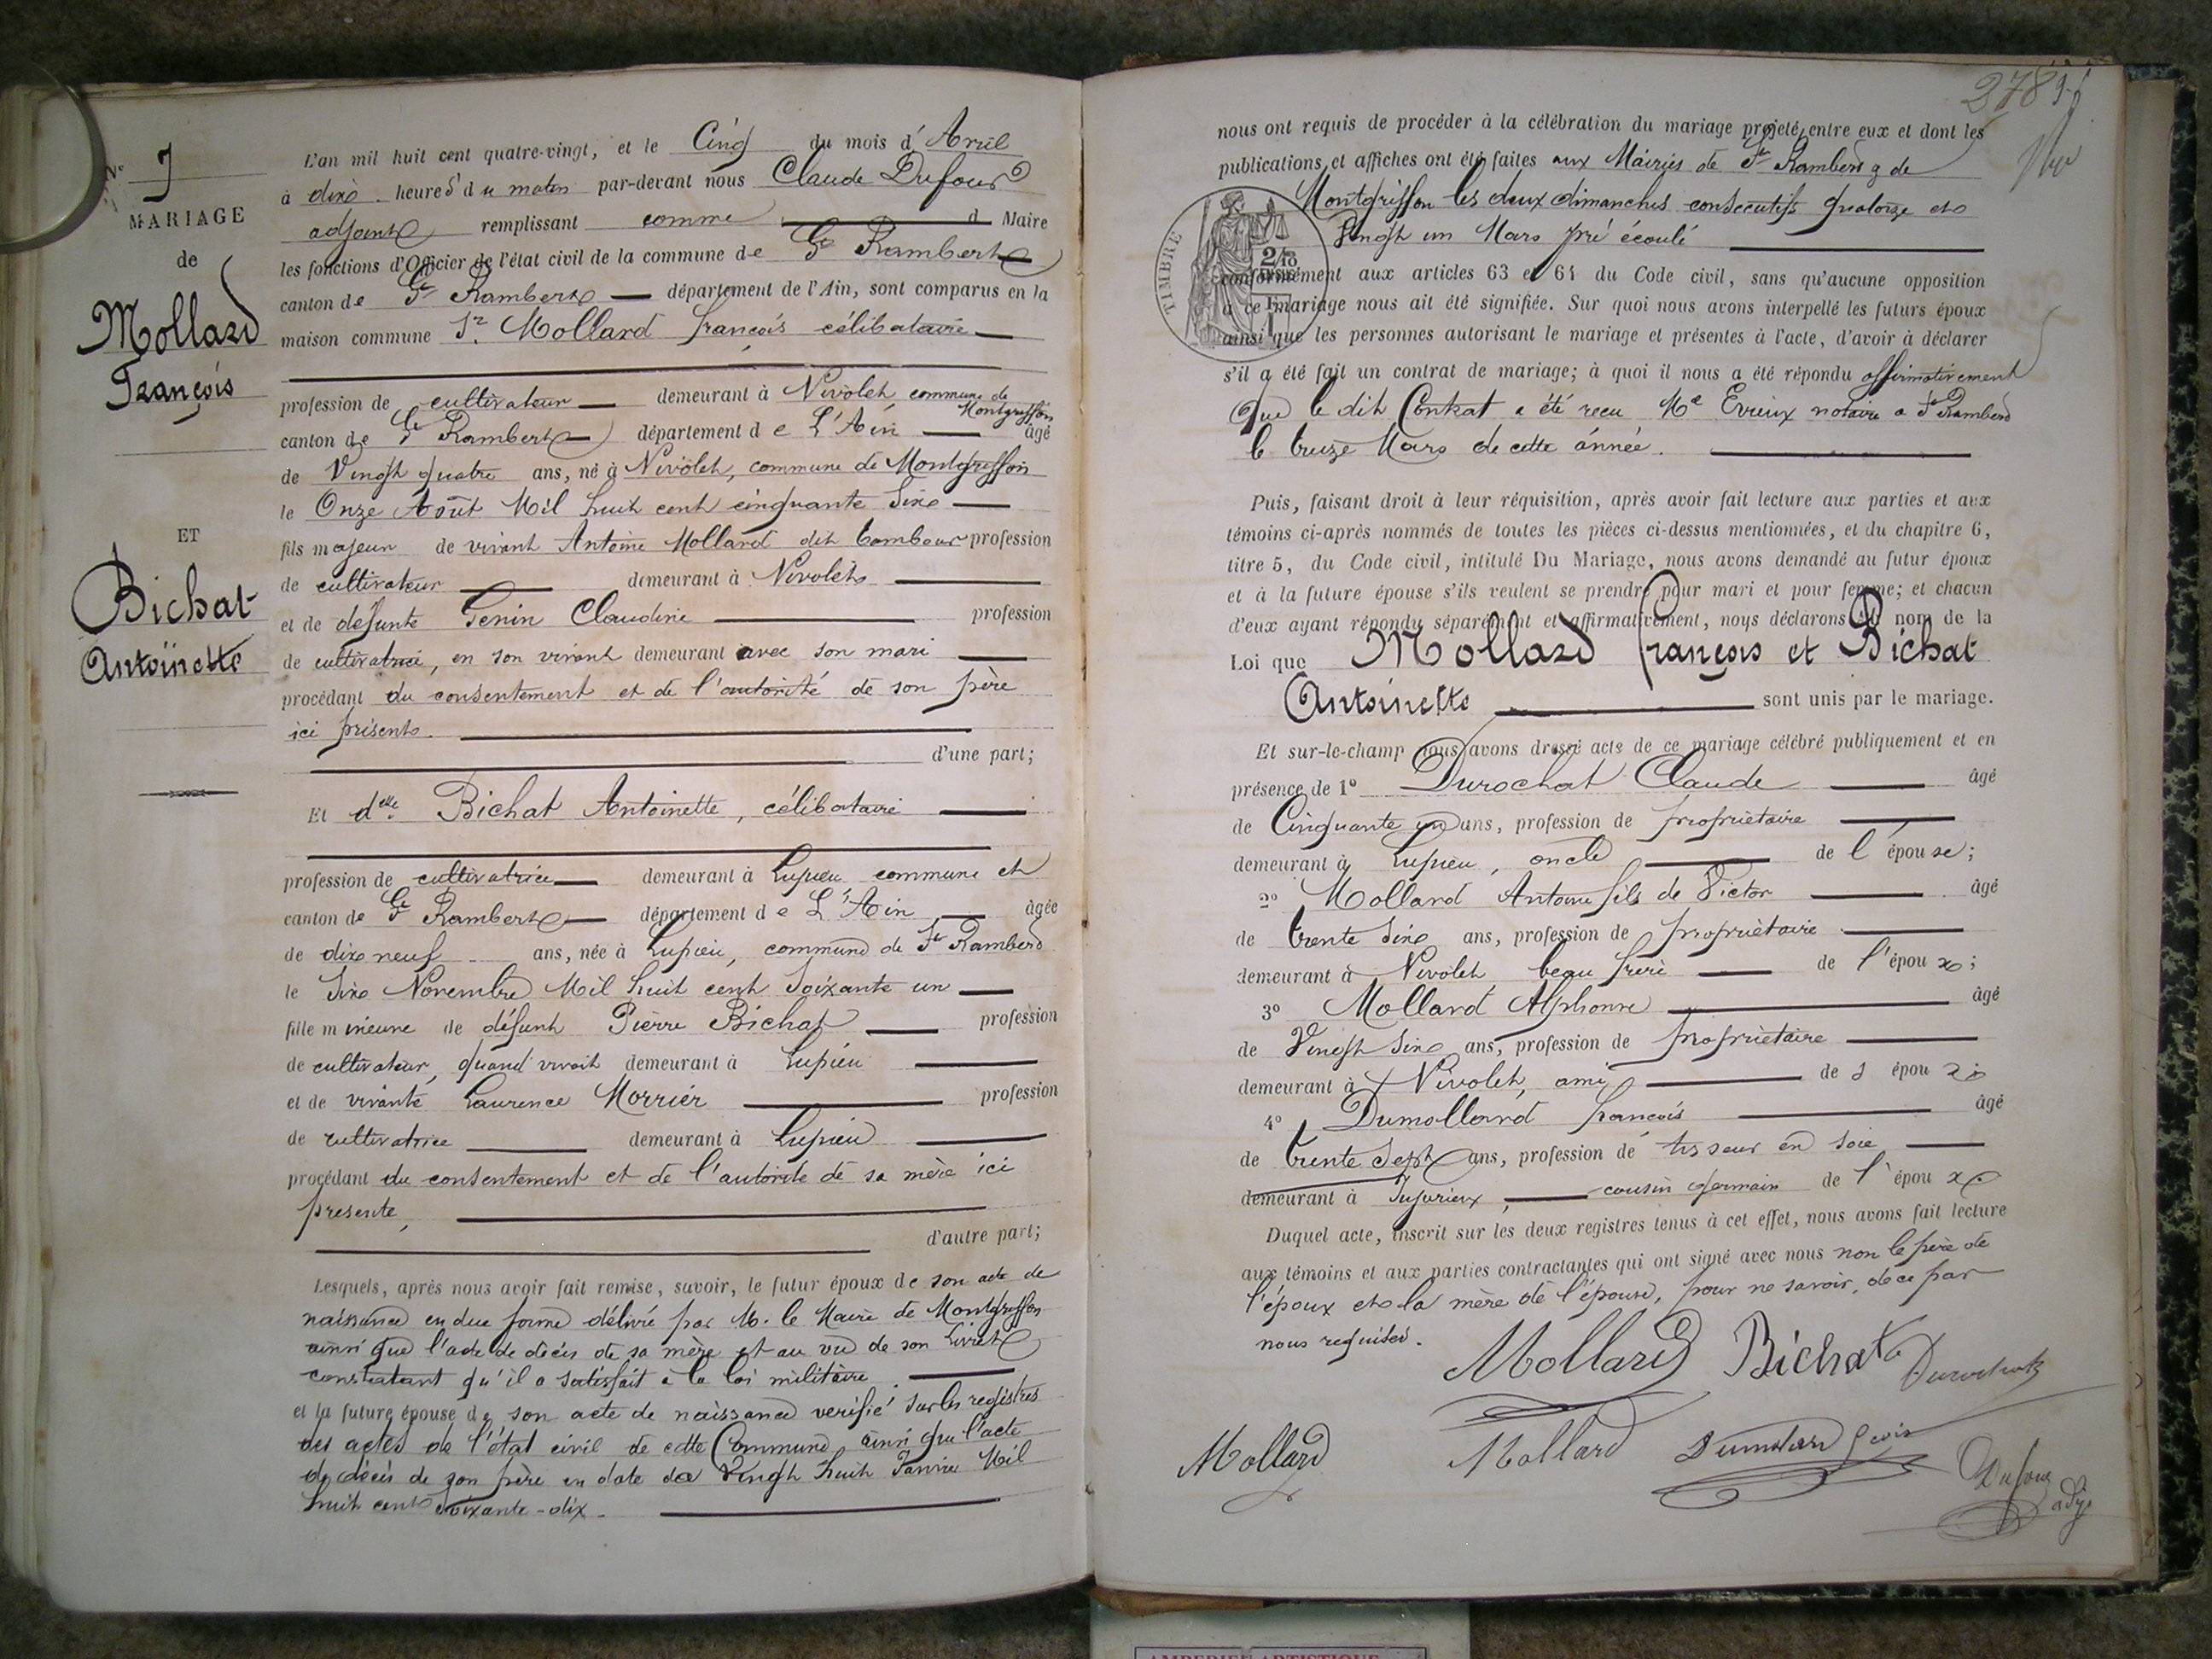 N° 9
MARIAGE
de
Mollard
François
ET
Bichat
Antoinette
L'an mil huit cent quatre-vingt, et le Cinq du mois d'Avril
à dix heures du matin par-devant nous Claude Dufour
adjoint remplissant comme d Maire
les fonctions d'Officier de l'état civil de la commune de St Rambert
canton de St Rambert département de l'Ain, sont comparus en la
maison commune Sr Mollard françois célibataire
profession de cultivateur demeurant à Nivolet commune de Montgriffon
canton de St Rambert département de L'Ain âgé
de Vingt quatre ans, né à Nivolet, commune de Montgriffon
le Onze Août Mil huit cent cinquante Six
fils majeur de vivant Antoine Mollard dit tambour profession
de cultivateur demeurant à Nivolet
et de defunte Genin Claudine profession
de cultivatrice, en son vivant demeurant avec son mari
procédant du consentement et de l'autorité de son père
ici présent.
d'une part;
Et delle Bichat Antoinette, célibataire
profession de cultivatrice demeurant à Lupieu commune et
canton de St Rambert département de L'Ain âgée
de dix neuf ans, née à Lupieu, commune de St Rambert
le Six Novembre Mil huit cent Soixante un
fille mineure de défunt Pierre Bichat profession
de cultivateur, quand vivait demeurant à Lupieu
et de vivante Laurence Morrier profession
de cultivatrice demeurant à Lupieu
procédant du consentement et de l'autorité de sa mère ici
presente,
d'autre part;
Lesquels, après nous avoir fait remise, savoir, le futur époux de son acte de
naissance en due forme délivré par M. le Maire de Montgriffon
ainsi que l'acte de décès de sa mère et au vu de son Livret
constatant qu'il a satisfait à la loi militaire.
et la future épouse de son acte de naissance verifié sur les registres
des actes de l'état civil de cette Commune ainsi que l'acte
de décès de son père en date du Vingt huit Janvier Mil
huit cent soixante-dix.
278
nous ont requis de procéder à la célébration du mariage projeté entre eux et dont les
publications et affiches ont été faites aux Mairies de St Rambert & de
Montgriffon les deux dimanches consecutifs quatorze et
Vingt un Mars pré écoulé
TIMBRE
conformément aux articles 63 et 64 du Code civil, sans qu'aucune opposition
à ce mariage nous ait été signifiée. Sur quoi nous avons interpellé les futurs époux
ainsi que les personnes autorisant le mariage et présentes à l'acte, d'avoir à déclarer
s'il a été fait un contrat de mariage; à quoi il nous a été répondu affirmativement
Que le dit Contrat a été recu Me Evieux notaire a St Rambert
le treize Mars de cette année.
Puis, faisant droit à leur réquisition, après avoir fait lecture aux parties et aux
témoins ci-après nommés de toutes les pièces ci-dessus mentionnées, et du chapitre 6,
titre 5, du Code civil, intitulé Du Mariage, nous avons demandé au futur époux
et à la future épouse s'ils veulent se prendre pour mari et pour femme; et chacun
d'eux ayant répondu séparément et affirmativement, nous déclarons au nom de la
Loi que Mollard François et Bichat
Antoinette sont unis par le mariage.
Et sur-le-champ nous avons dressé acte de ce mariage célébré publiquement et en
présence de 1° Durochat Claude âgé
de Cinquante un ans, profession de propriétaire
demeurant à Lupieu, oncle de l'épouse;
2° Mollard Antoine fils de Victor âgé
de trente Six ans, profession de propriètaire
demeurant à Nivolet beau frere de l'époux;
3° Mollard Alphonse âgé
de Vingt Six ans, profession de propriètaire
demeurant à Nivolet, ami de s époux;
4° Dumollard françois âgé
de trente Sept ans, profession de tisseur en soie
demeurant à Jujurieux, cousin germain de l'époux.
Duquel acte, inscrit sur les deux registres tenus à cet effet, nous avons fait lecture
aux témoins et aux parties contractantes qui ont signé avec nous non le père de
l'époux et la mère de l'épouse, pour ne savoir, de ce par
nous requises.
Mollard Bichat Durochat
Mollard Mollard Dumolard
Dufour adj